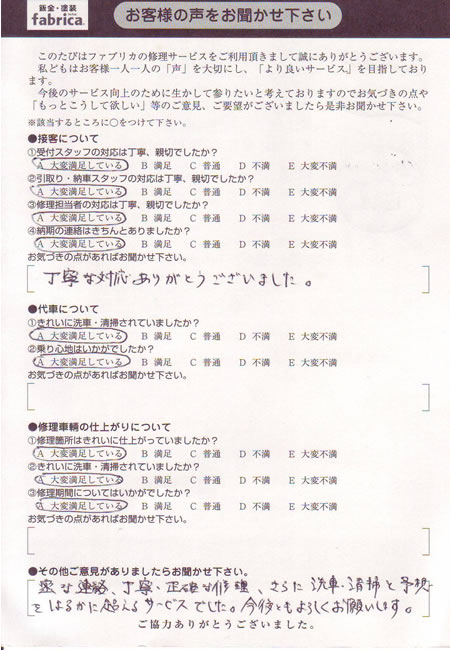 鈑金・塗装
fabrica.
お客様の声をお聞かせ下さい
このたびはファブリカの修理サービスをご利用頂きまして誠にありがとうございます。
私どもはお客様一人一人の「声」を大切にし、「より良いサービス」を目指しており
ます。
今後のサービス向上のために生かして参りたいと考えておりますのでお気づきの点や
「もっとこうして欲しい」等のご意見、ご要望がございましたら是非お聞かせ下さい。
※該当するところに○をつけて下さい。
●接客について
①受付スタッフの対応は丁寧、親切でしたか？
A 大変満足している B 満足 C 普通 D 不満 E 大変不満
②引取り・納車スタッフの対応は丁寧、親切でしたか？
A 大変満足している B 満足 C 普通 D 不満 E 大変不満
③修理担当者の対応は丁寧、親切でしたか？
A 大変満足している B 満足 C 普通 D 不満 E 大変不満
④納期の連絡はきちんとありましたか？
A 大変満足している B 満足 C 普通 D 不満 E 大変不満
お気づきの点があればお聞かせ下さい。
丁寧な対応ありがとうございました。
●代車について
①きれいに洗車・清掃されていましたか？
A 大変満足している B 満足 C 普通 D 不満 E 大変不満
②乗り心地はいかがでしたか？
A 大変満足している B 満足 C 普通 D 不満 E 大変不満
お気づきの点があればお聞かせ下さい。
●修理車輌の仕上がりについて
①修理箇所はきれいに仕上がっていましたか？
A 大変満足している B 満足 C 普通 D 不満 E 大変不満
②きれいに洗車・清掃されていましたか？
A 大変満足している B 満足 C 普通 D 不満 E 大変不満
③修理期間についてはいかがでしたか？
A 大変満足している B 満足 C 普通 D 不満 E 大変不満
お気づきの点があればお聞かせ下さい。
●その他ご意見がありましたらお聞かせ下さい。
密な連絡、丁寧・正確な修理、さらに洗車・清掃と予想
をはるかに超えるサービスでした。今後ともよろしくお願いします。
ご協力ありがとうございました。